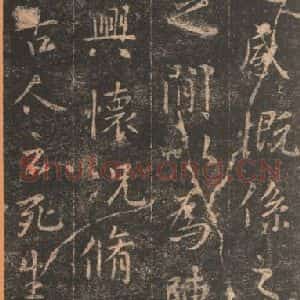 感慨係之
之閒以為陳
興懷況脩
古人云死生
Shufawang.CN